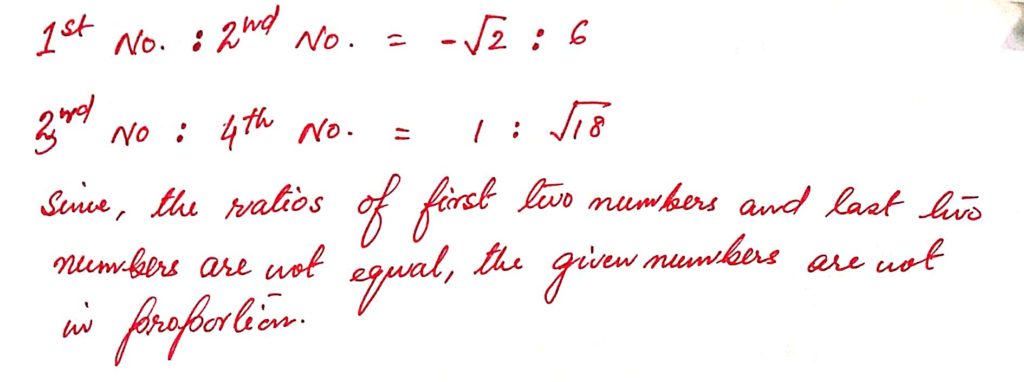 1st No. : 2nd No. = -√2 : 6
3rd No : 4th No. = 1 : √18
Since, the ratios of first two numbers and last two
numbers are not equal, the given numbers are not
in proportion.